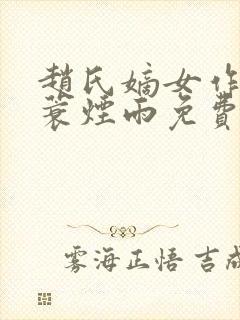 趙氏嫡女作
蓑煙雨免費
雾海正悟 吉成